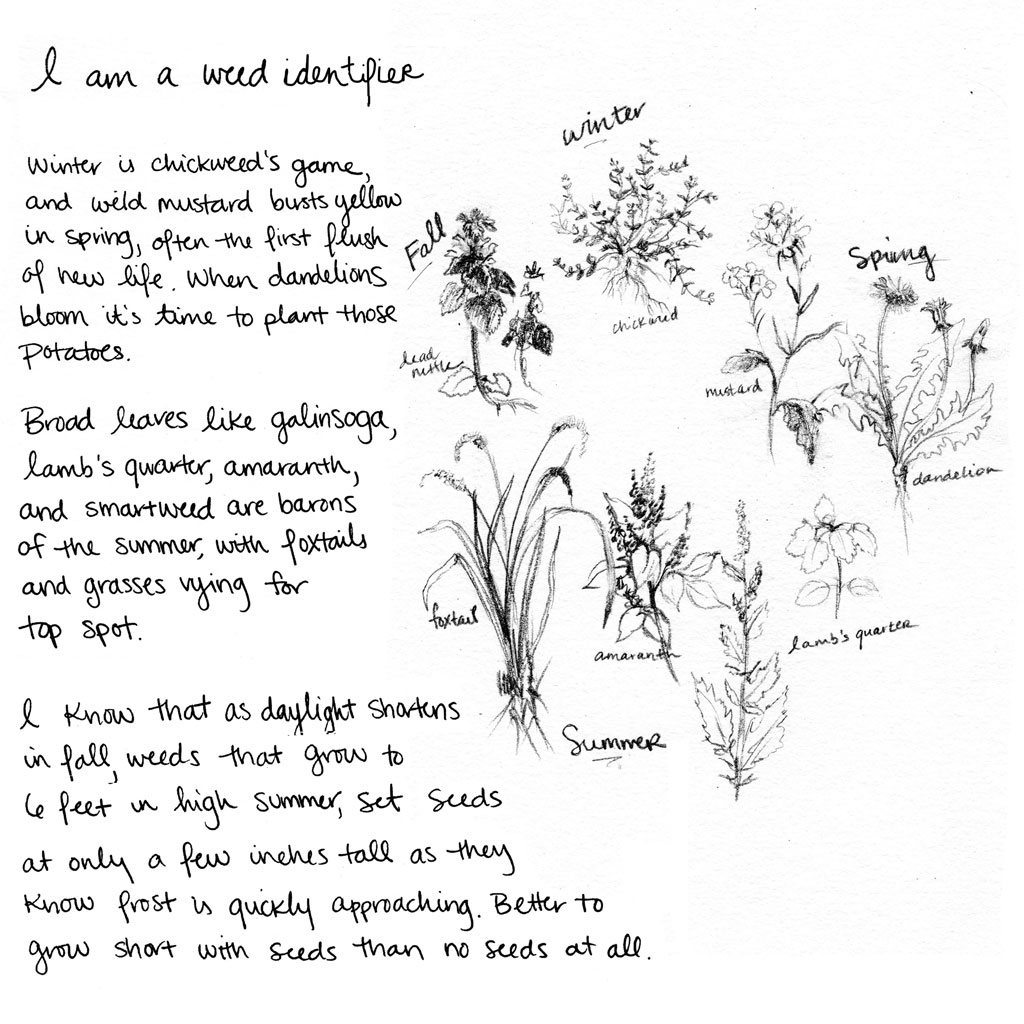 I am a weed identifier
Winter is chickweed's game,
and wild mustard busts yellow
in spring, often the first flush
of new life. When dandelions
bloom it's time to plant those
potatoes.
Broad leaves like galinsoga,
lamb's quarter, amaranth,
and smartweed are barons
of the summer, with foxtails
and grasses vying for
top spot.
I know that as daylight shortens
in fall, weeds that grow to
6 feet in high summer, set seeds
at only a few inches tall as they
know frost is quickly approaching. Better to
grow short with seeds than no seeds at all.
Winter
chickweed
Fall
dead
nettle
Spring
mustard
dandelion
foxtail
amaranth
lamb's quarter
Summer